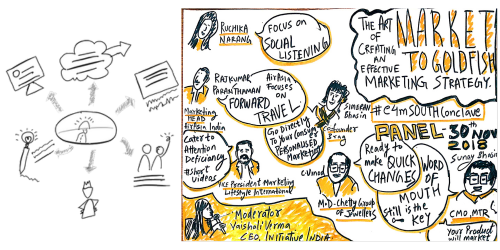 RUCHIKA
NARANG
FOCUS ON
SOCIAL
LISTENING
THE ART
OF
CREATING
AN
EFFECTIVE
MARKETING STRATEGY.
MARKET
TO GOLDFISH
RAJKUMAR
PARANTHAMAN
MARKETING
HEAD
AirAsia India
AirAsia
FOCUSES ON
FORWARD
TRAVEL
Go Directly
TO YOUR CONSUMER
PERSONALISED
Marketing
SIMRAN
Bhasin
#e4mSOUTHConclave
PANEL
30th NOV
2018
Cater to
Attention
Deficiency
#Short
videos
Vice President Marketing
Lifestyle International
C. Vinod
M.D-Chetty Group
OF Jewellers
Ready to
make QUICK
CHANGES
WORD
OF
MOUTH
Still is the
KEY
CMO, MTR
Your Product
will market
Moderator
Vaishali Verma
CEO, Initiative INDIA